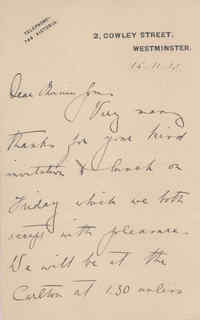 TELEPHONE:
VICTORIA.
2, COWLEY STREET,
WESTMINSTER.
Dear
Very many
thanks for your kind
invitation to lunch on
Friday which we both
accept with pleasure.
We will be at the
Carlton at 1.30 unless